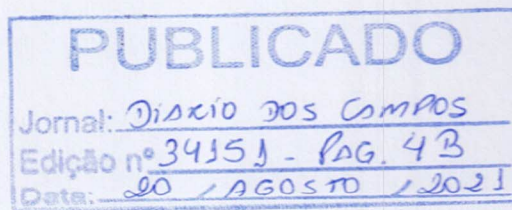 PUBLICADO
Jornal: DIARIO DOS CAMPOS
Edição nº 34151 - PAG. 4B
Data: 20 / AGOSTO / 2021